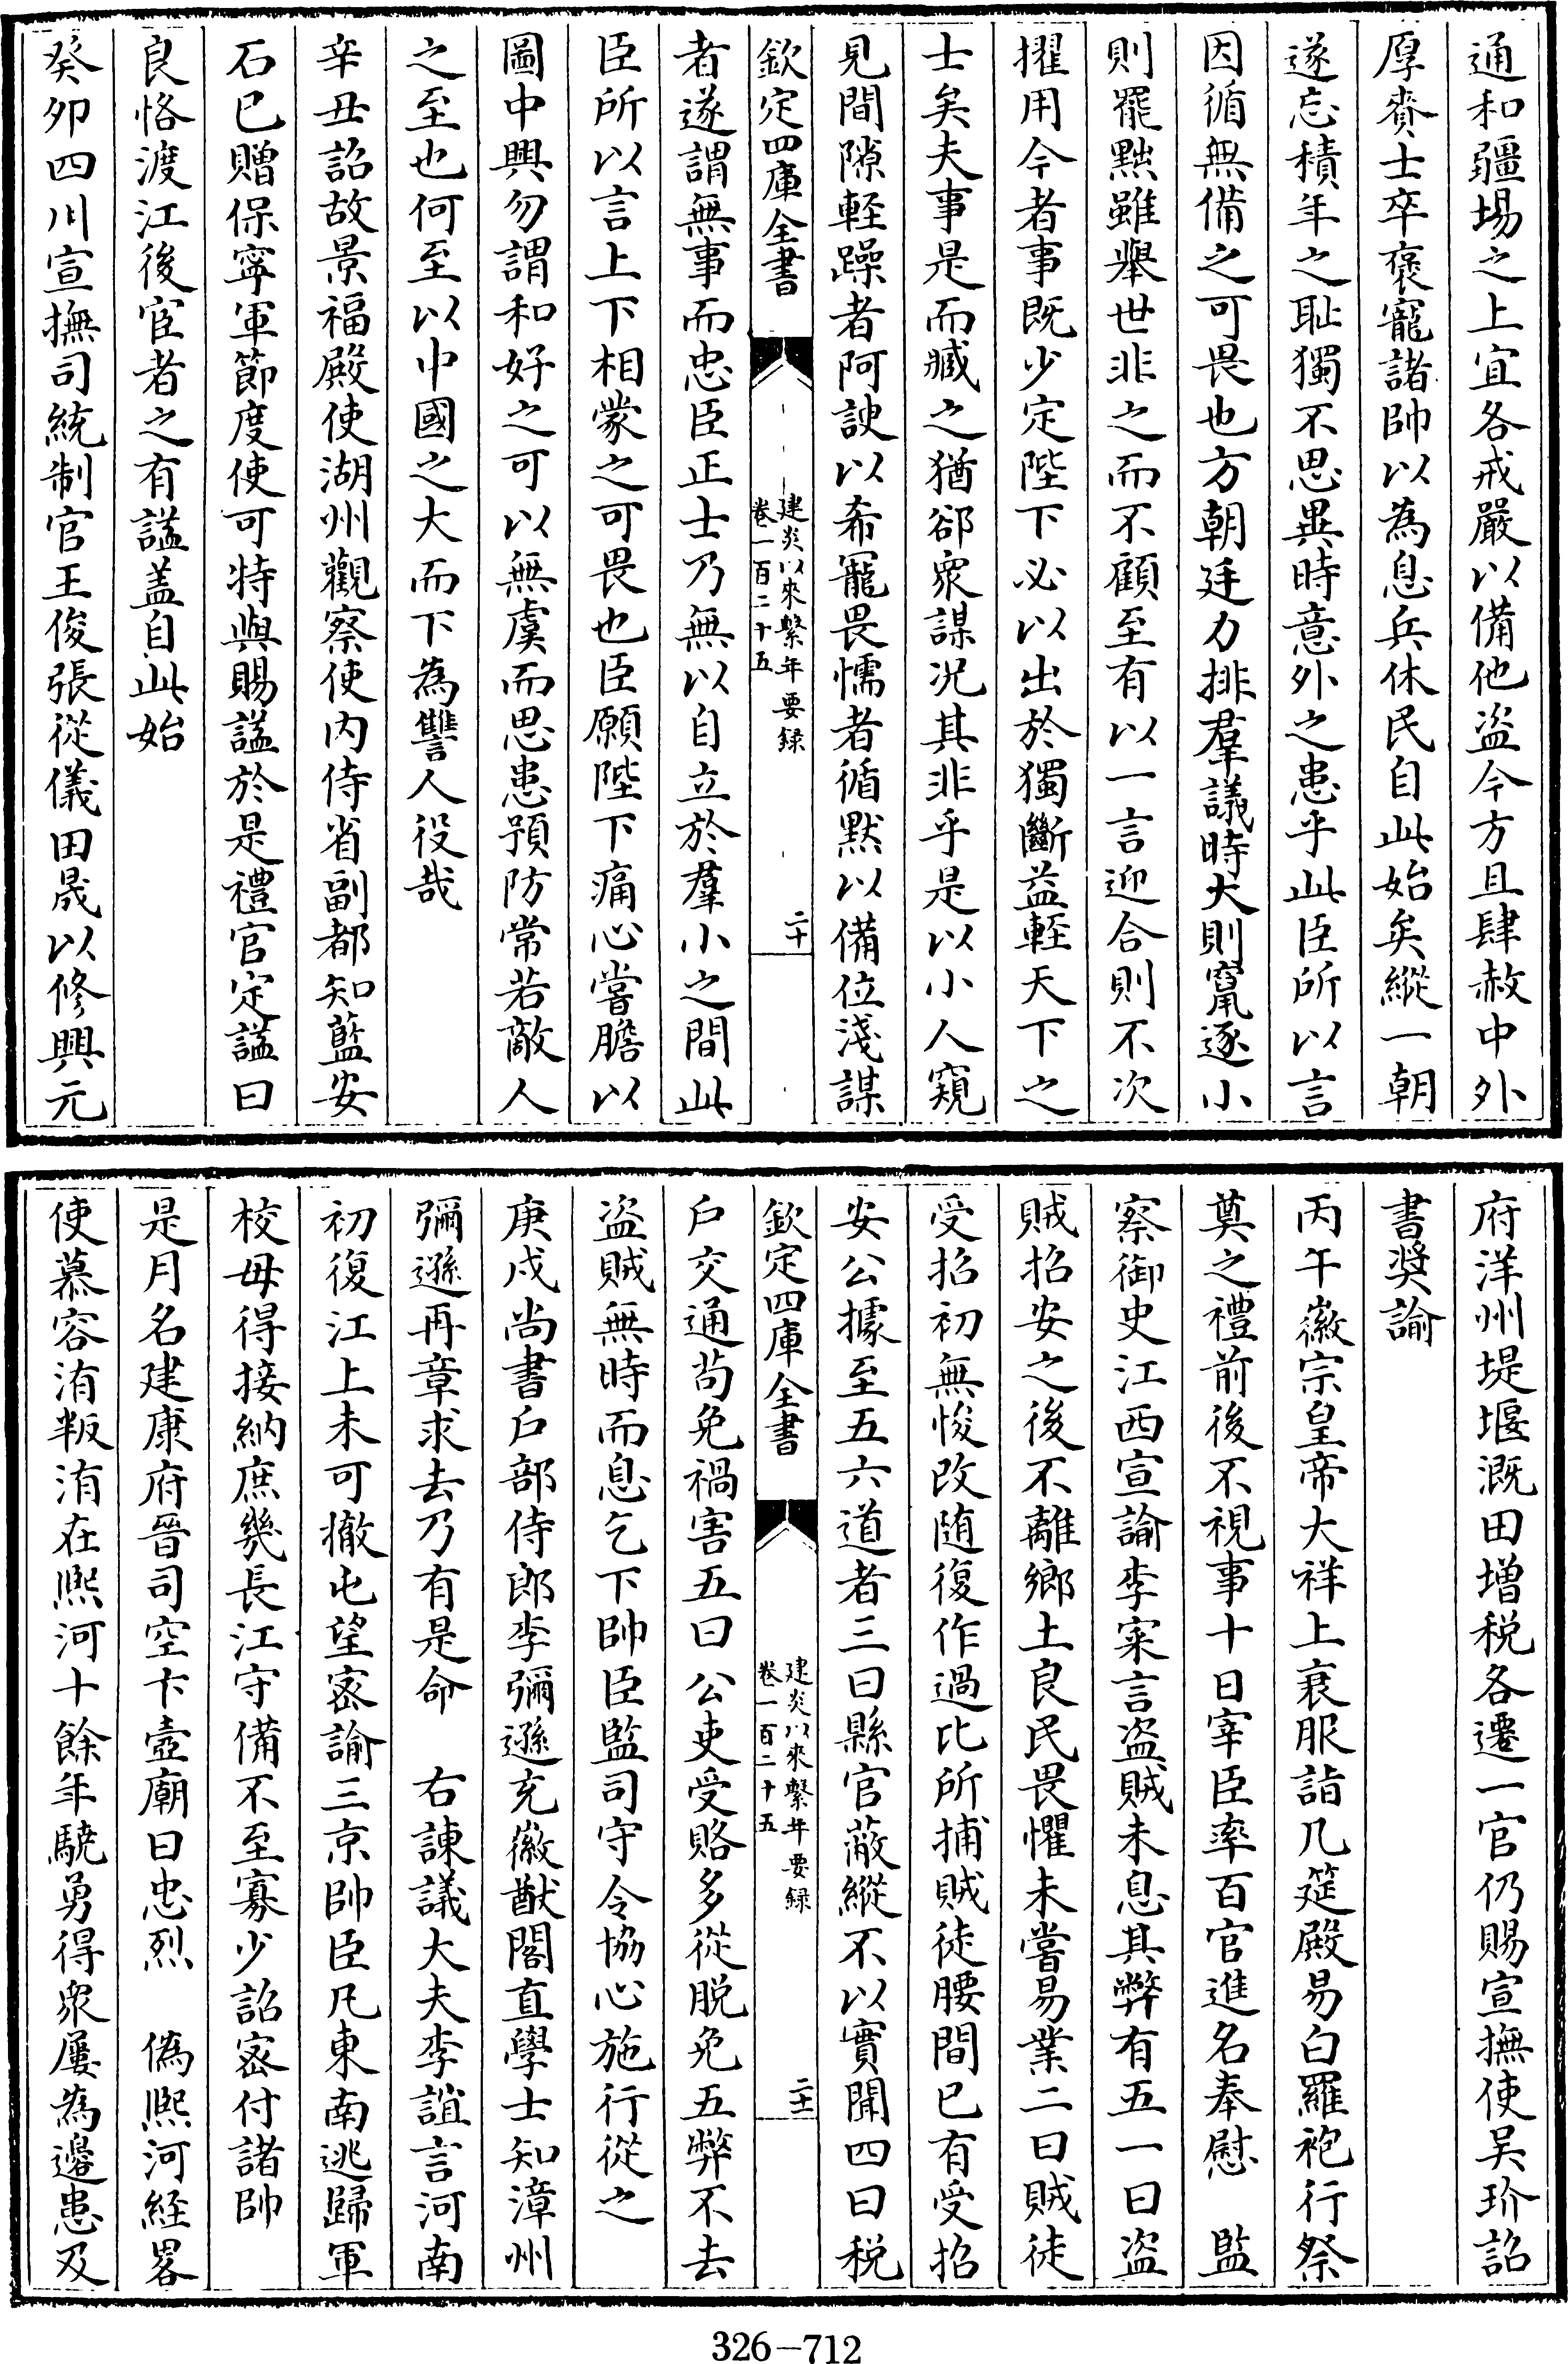 通和疆場之上宜各戒嚴以備他盜今方且肆赦中外
厚賚士卒褒寵諸帥以為息兵休民自此始矣縱一朝
遂忘積年之恥獨不思異時意外之患乎此臣所以言
因循無備之可畏也方朝廷力排羣議時大則竄逐小
則罷黜雖舉世非之而不顧至有以一言迎合則不次
擢用今者事既少定陛下必以出於獨斷益輕天下之
士矣夫事是而臧之猶郤衆謀况其非乎是以小人窺
見間隙輕躁者阿諛以希寵畏懦者循默以備位淺謀
欽定四庫全書
建炎以來繫年要録
卷一百二十五
二十
者遂謂無事而忠臣正士乃無以自立於羣小之間此
臣所以言上下相蒙之可畏也臣願陛下痛心嘗膽以
圖中興勿謂和好之可以無虞而思患預防常若敵人
之至也何至以中國之大而下為讐人役哉
辛丑詔故景福殿使湖州觀察使内侍省副都知藍安
石已贈保寧軍節度使可特與賜謚於是禮官定謚曰
良恪渡江後宦者之有謚盖自此始
癸卯四川宣撫司統制官王俊張從儀田晟以修興元
府洋州堤堰溉田增税各遷一官仍賜宣撫使吴玠詔
書奬諭
丙午徽宗皇帝大祥上衰服詣几筵殿易白羅袍行祭
奠之禮前後不視事十日宰臣率百官進名奉慰　監
察御史江西宣諭李寀言盜賊未息其弊有五一曰盜
賊招安之後不離鄉土良民畏懼未嘗易業二曰賊徒
受招初無悛改随復作過比所捕賊徒腰間已有受招
安公據至五六道者三曰縣官蔽縱不以實聞四曰税
欽定四庫全書
建炎以來繫年要録
卷一百二十五
二十一
戶交通茍免禍害五曰公吏受賂多從脱免五弊不去
盜賊無時而息乞下帥臣監司守令協心施行從之
庚戍尚書戶部侍郎李彌遜充徽猷閣直學士知漳州
彌遜再章求去乃有是命　右諫議大夫李誼言河南
初復江上未可撤屯望宻諭三京帥臣凡東南逃歸軍
校毋得接納庶幾長江守備不至寡少詔宻付諸帥
是月名建康府晉司空卞壺廟曰忠烈　偽熈河經畧
使慕容洧叛洧在熈河十餘年驍勇得衆屢為邊患及
326-712